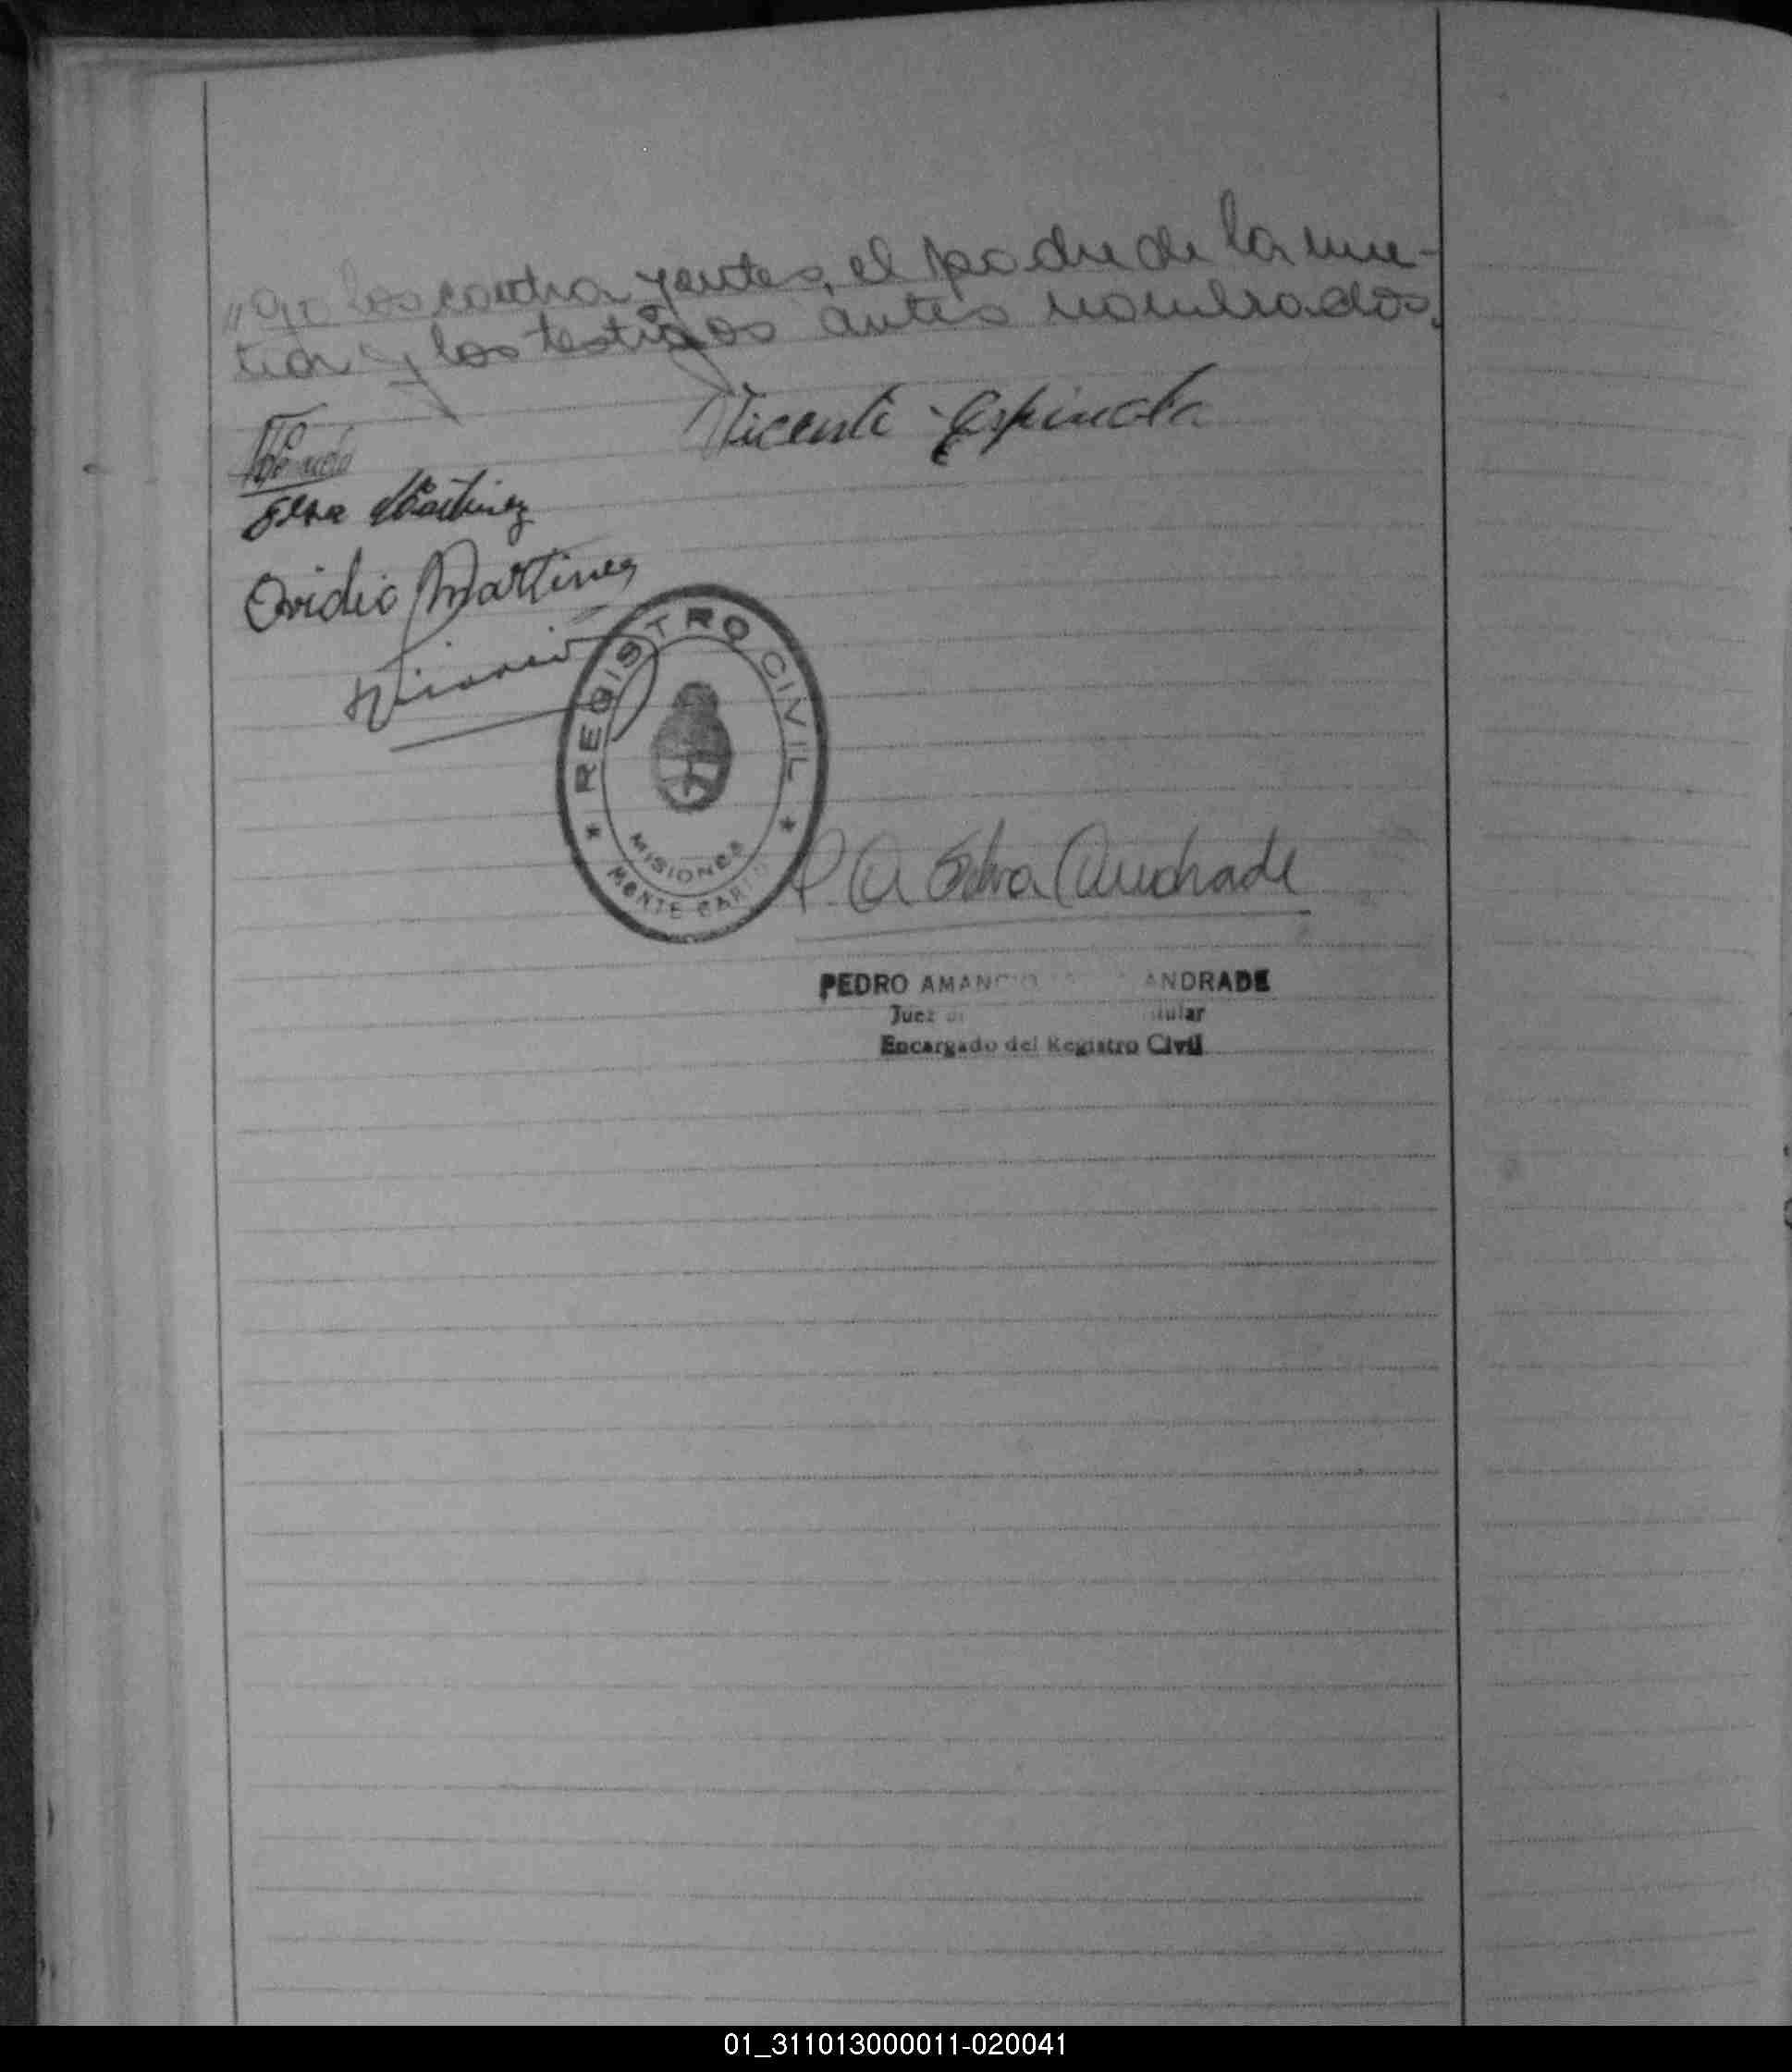 "go los contrayentes, el padre de la mu-
tra y los testigos antes nombrados.
Vicente Espindola
Elsa Martinez
Ovidio Martinez
REGISTRO CIVIL
MISIONES
MONTE CARLO
P. A. Silva Andrade
PEDRO AMANCIO ANDRADE
Juez
Encargado del Registro Civil
01_311013000011-020041